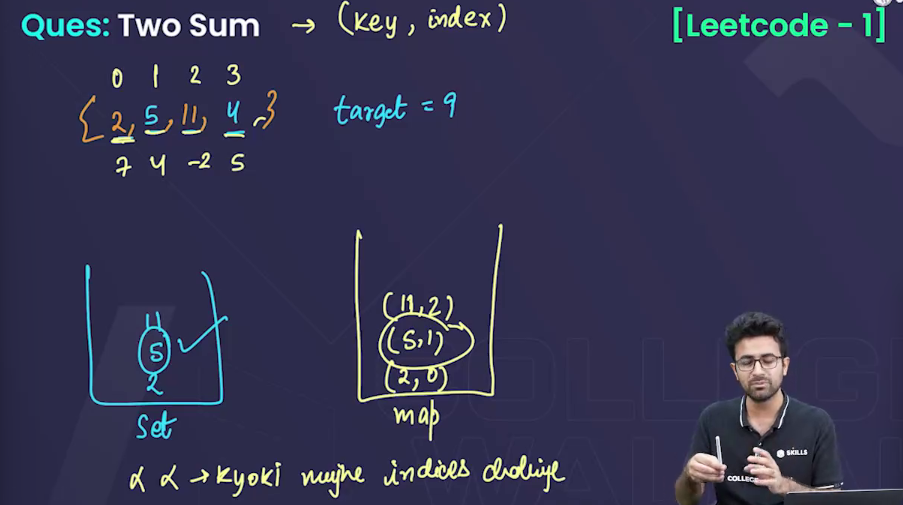 Ques: Two Sum → (key, index) [Leetcode - 1]
0 1 2 3
{2, 5, 11, 4} target = 9
7 4 -2 5
11
5
2
set
(11, 2)
(5, 1)
(2, 0)
map
→ kyoki mujhe indices chahiye
SKILLS
COLLEGE